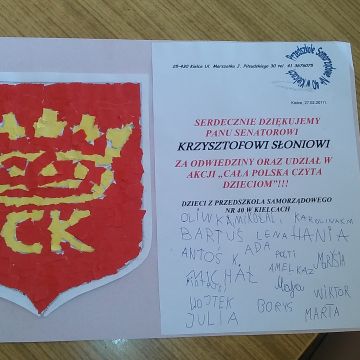 CK
Przedszkole Samorządowe Nr 40 w Kielcach
25-430 Kielce Ul. Marszałka J. Piłsudskiego 30 tel. 41 3676075
Kielce, 27.02.2017r.
SERDECZNIE DZIĘKUJEMY
PANU SENATOROWI
KRZYSZTOFOWI SŁONIOWI
ZA ODWIEDZINY ORAZ UDZIAŁ W
AKCJI „CAŁA POLSKA CZYTA
DZIECIOM"!!!
DZIECI Z PRZEDSZKOLA SAMORZĄDOWEGO
NR 40 W KIELCACH
OLIWKA
BARTUŚ LENA HANIA
ANTOŚ K. ADA
MICHAŁ
WOJTEK BORYS WIKTOR
JULIA MARTA